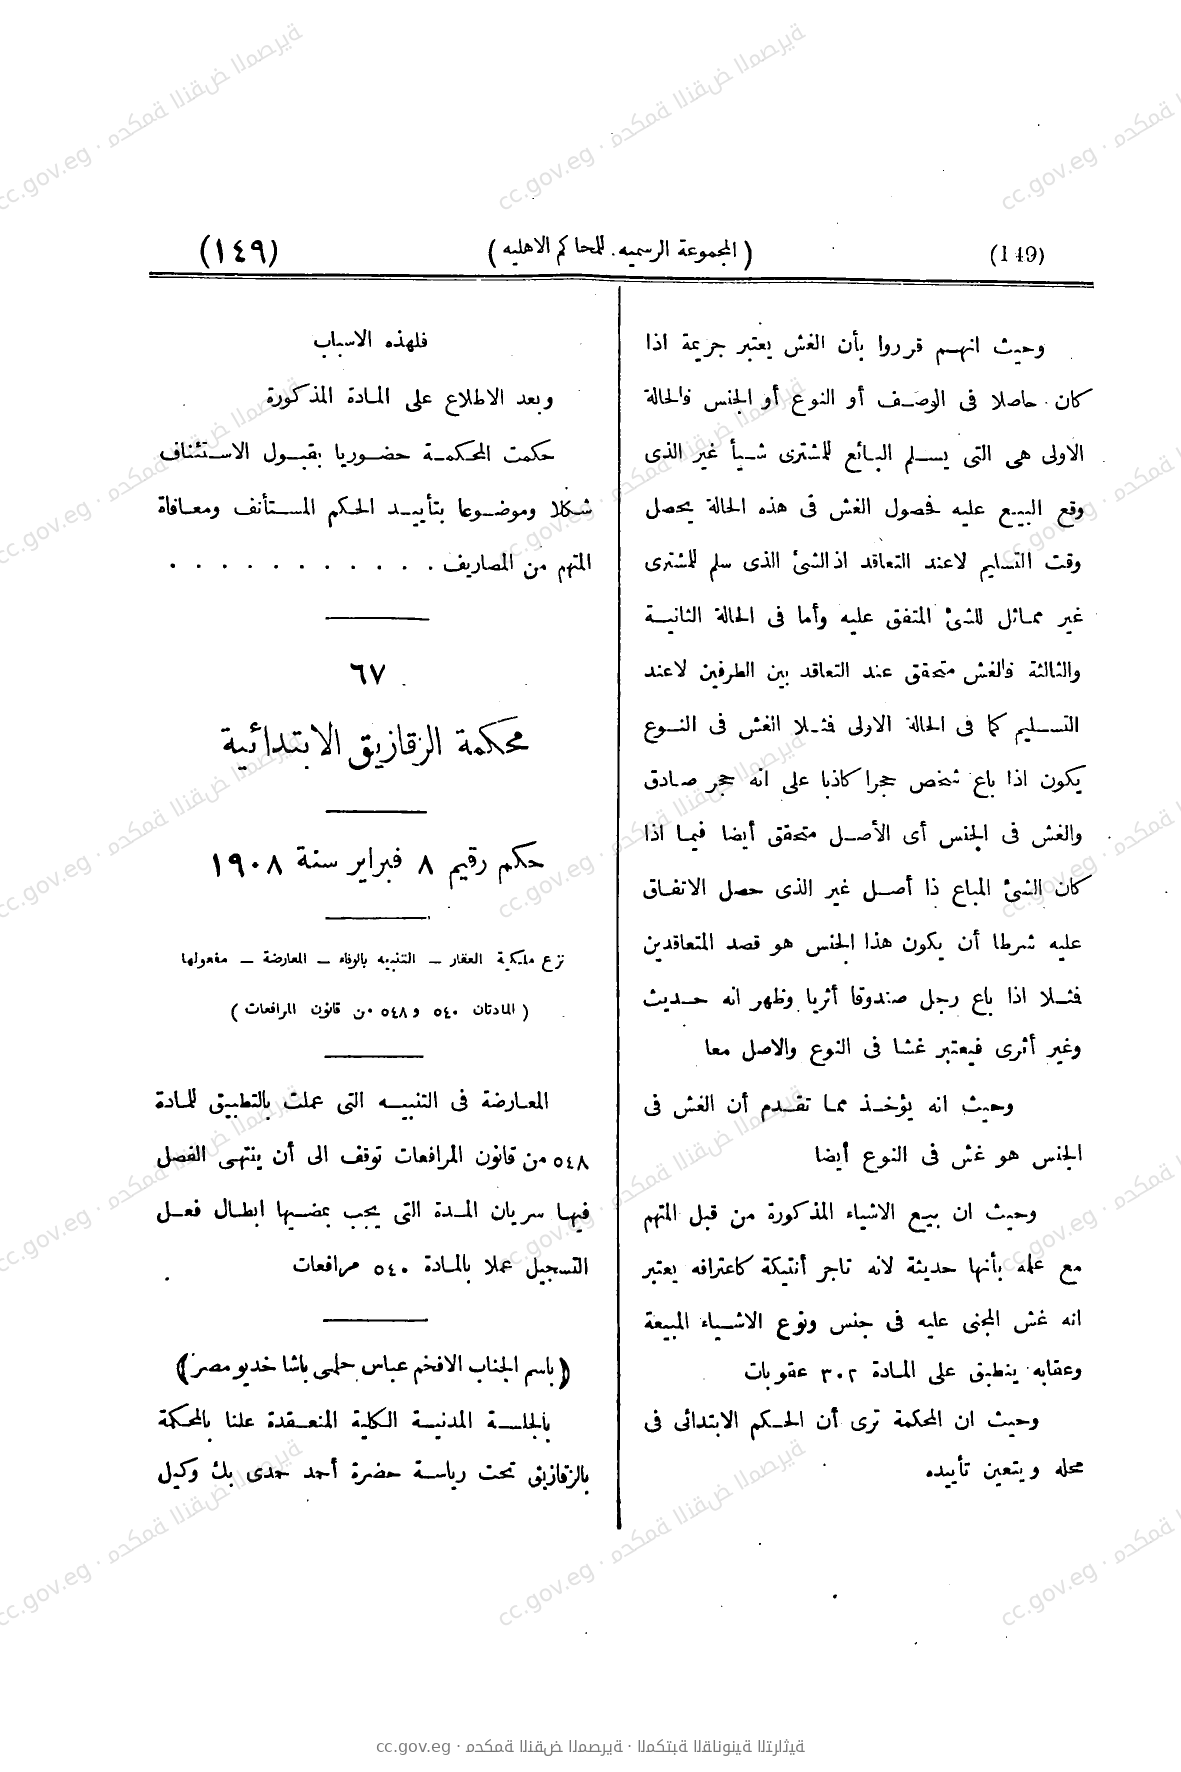 (149)
(المجموعة الرسميه للمحاكم الاهليه)
(١٤٩)
وحيث انهم قرروا بأن الغش يعتبر جريمة اذا
كان حاصلا فى الوصف أو النوع أو الجنس فالحالة
الاولى هى التى يسلم البائع للمشترى شيأ غير الذى
وقع البيع عليه فحصول الغش فى هذه الحالة يحصل
وقت التسليم لاعند التعاقد اذ الشئ الذى سلم للمشترى
غير مماثل للشئ المتفق عليه وأما فى الحالة الثانية
والثالثة فالغش متحقق عند التعاقد بين الطرفين لاعند
التسليم كما فى الحالة الاولى فمثلا الغش فى النوع
يكون اذا باع شخص حجرا كاذبا على انه حجر صادق
والغش فى الجنس أى الأصل متحقق أيضا فيما اذا
كان الشئ المباع ذا أصل غير الذى حصل الاتفاق
عليه شرطا أن يكون هذا الجنس هو قصد المتعاقدين
فمثلا اذا باع رجل صندوقا أثريا وظهر انه حديث
وغير أثرى فيعتبر غشا فى النوع والاصل معا
وحيث انه يؤخذ مما تقدم أن الغش فى
الجنس هو غش فى النوع أيضا
وحيث ان بيع الاشياء المذكورة من قبل المتهم
مع علمه بأنها حديثة لانه تاجر أنتيكة كاعترافه يعتبر
انه غش المجنى عليه فى جنس ونوع الاشياء المبيعة
وعقابه ينطبق على المادة ٣٠٢ عقوبات
وحيث ان المحكمة ترى أن الحكم الابتدائى فى
محله ويتعين تأييده
فلهذه الاسباب
وبعد الاطلاع على المادة المذكورة
حكمت المحكمة حضوريا بقبول الاستئناف
شكلا وموضوعا بتأييد الحكم المستأنف ومعافاة
المتهم من المصاريف . . . . . . . . . . .
٦٧
محكمة الزقازيق الابتدائية
حكم رقيم ٨ فبراير سنة ١٩٠٨
نزع ملكية العقار – التنبيه بالوفاء – المعارضة – مفعولها
(المادتان ٥٤٠ و٥٤٨ من قانون المرافعات)
المعارضة فى التنبيه التى عملت بالتطبيق للمادة
٥٤٨ من قانون المرافعات توقف الى أن ينتهى الفصل
فيها سريان المدة التى يجب بمضيها ابطال فعل
التسجيل عملا بالمادة ٥٤٠ مرافعات
(باسم الجناب الافخم عباس حلمى باشا خديو مصر)
بالجلسة المدنية الكلية المنعقدة علنا بالمحكمة
بالزقازيق تحت رياسة حضرة أحمد حمدى بك وكيل
cc.gov.eg · محكمة النقض المصرية · المكتبة القانونية التراثية